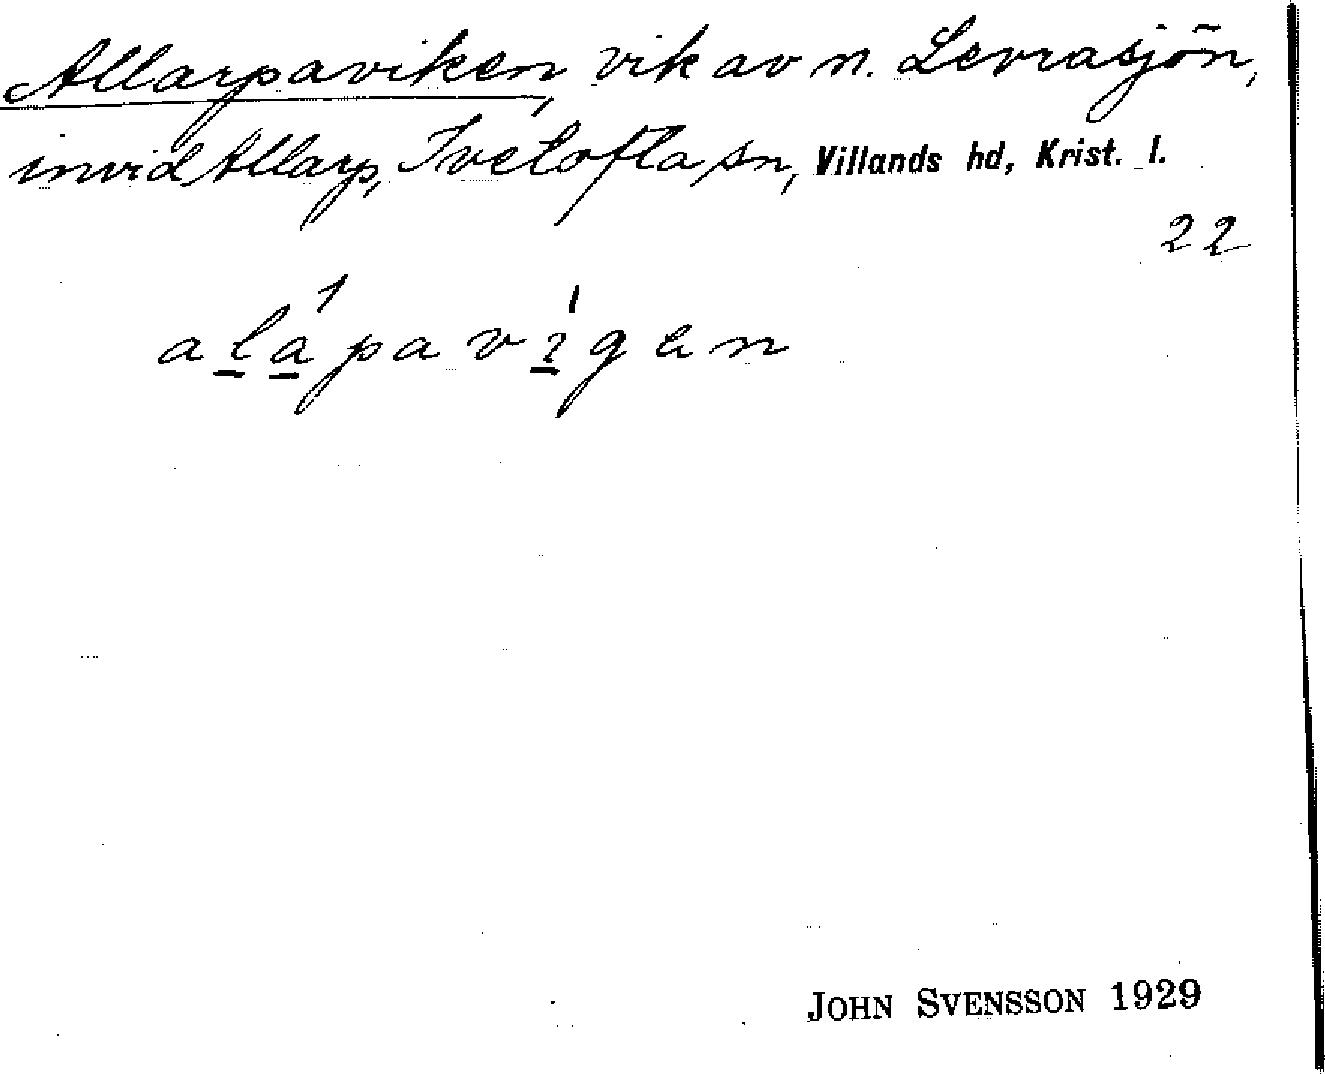 Allarpaviken, vik av n. Levrasjön,
invid Allarp, Ivetofta sn, Villands hd, Krist. l.
22
alápavígen
JOHN SVENSSON 1929